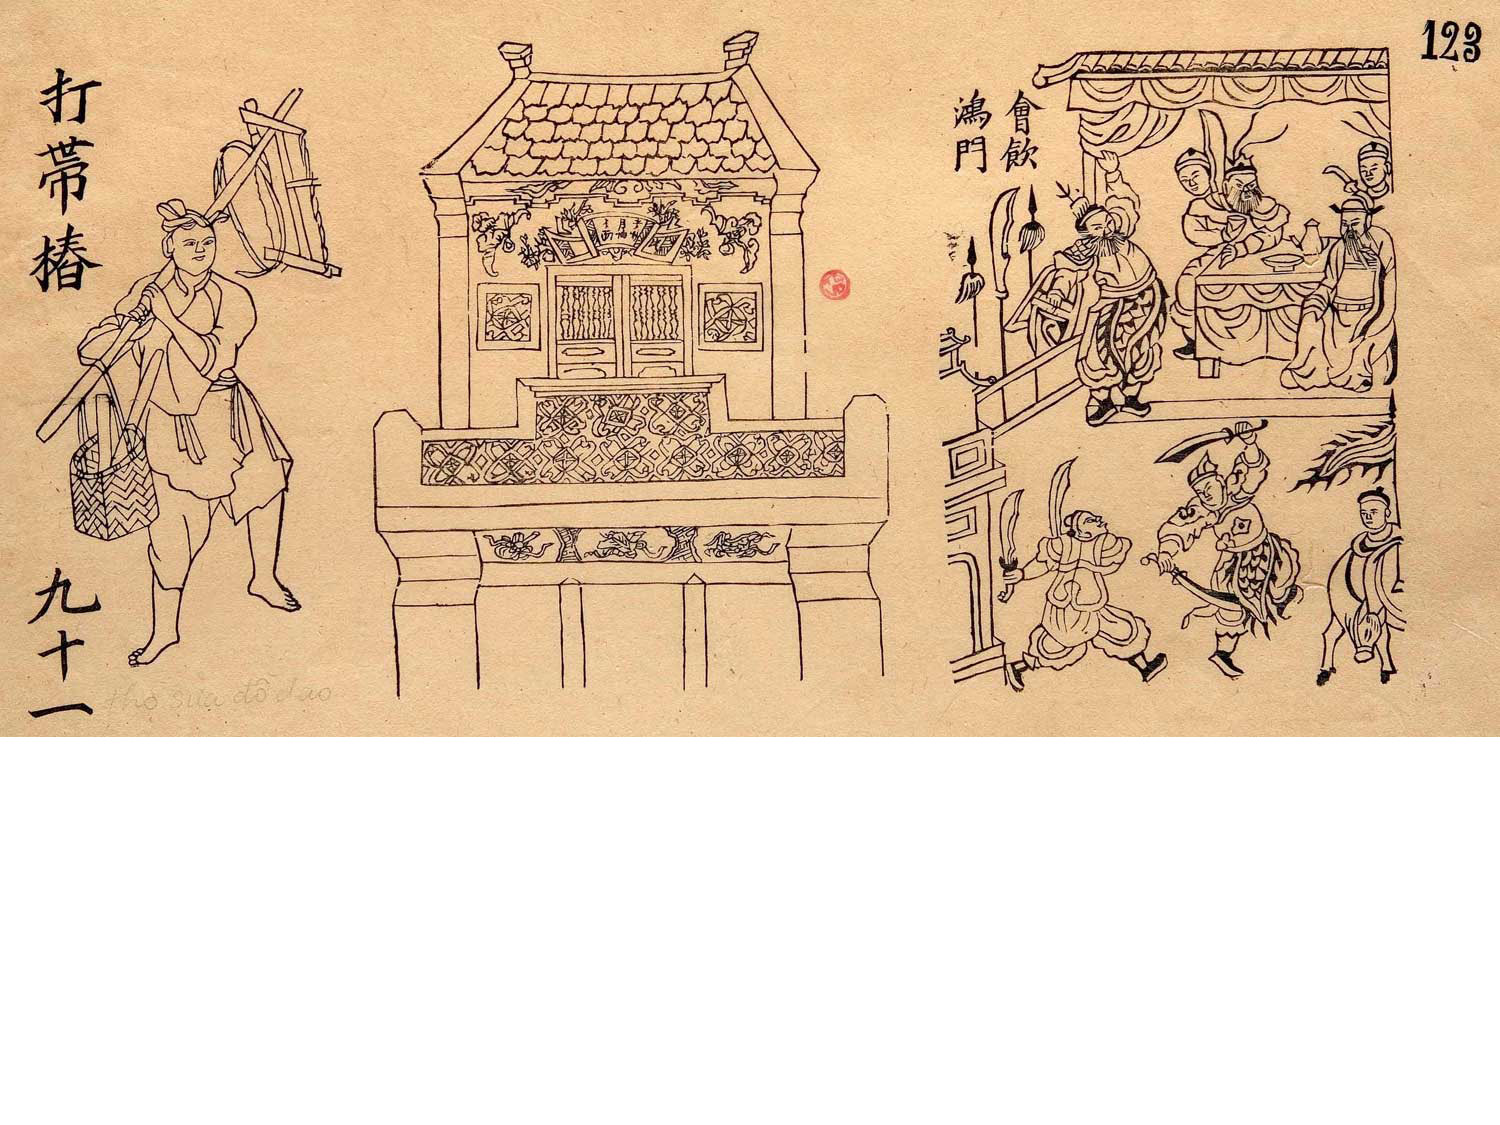 打帶樁
九十一
thợ sửa đồ đạo
會飲
鴻門
123